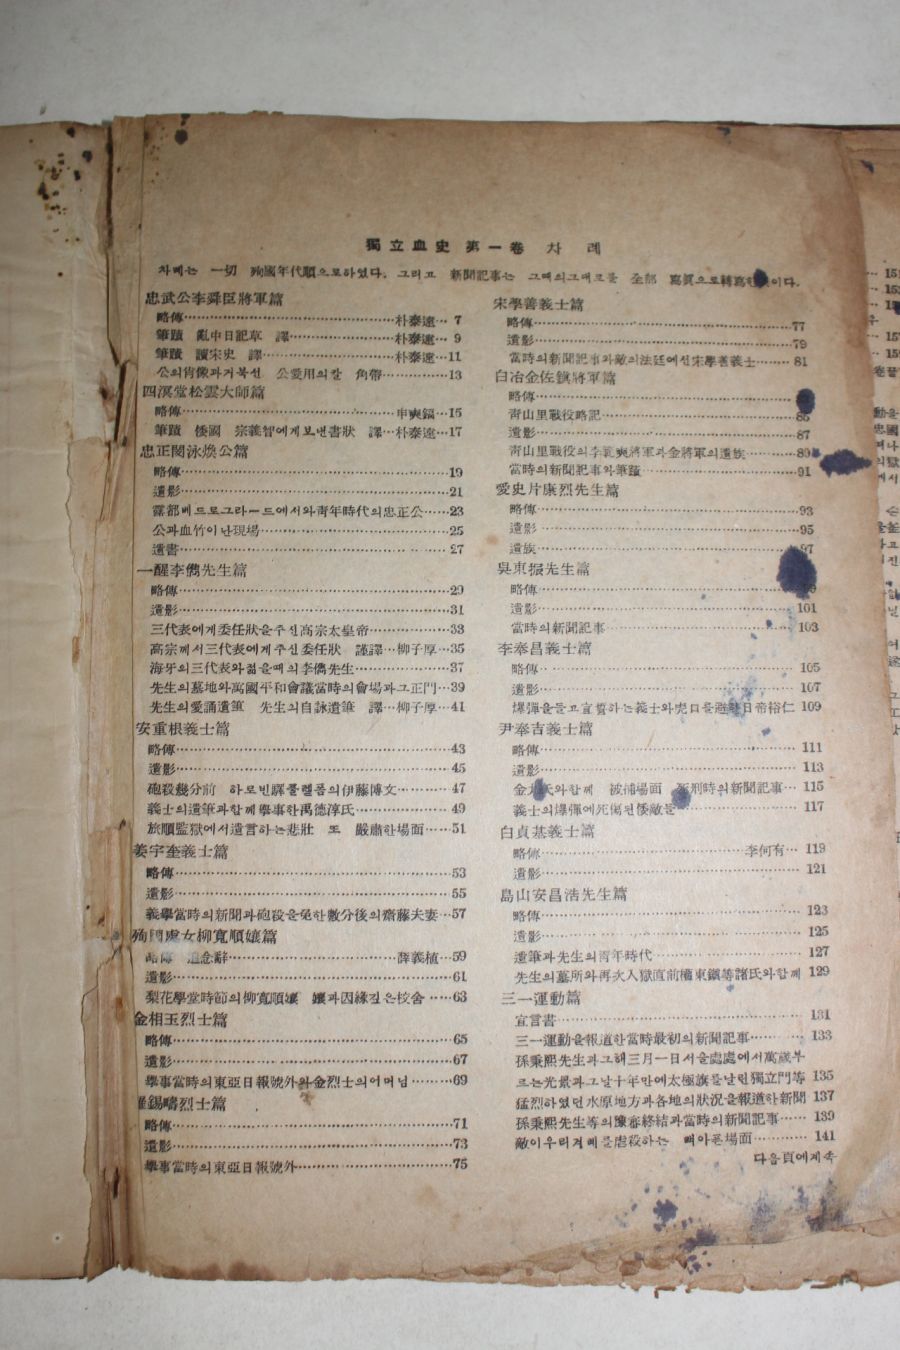 獨立血史 第一卷 차례
차례는 一切 殉國年代順으로하였다. 그리고 新聞記事는 그때의그대로를 全部 寫眞으로轉寫한 이다.
忠武公李舜臣將軍篇
略傳……朴泰遠… 7
筆蹟 亂中日記草 譯……朴泰遠… 9
筆蹟 讀宋史 譯……朴泰遠…11
公의肖像과거북선 公愛用의칼 角帶……13
四溟堂松雲大師篇
略傳……申奭鎬…15
筆蹟 倭國 宗義智에게보낸書狀 譯…朴泰遠…17
忠正閔泳煥公篇
略傳……19
遺影……21
露都베드로그라ー드에서와靑年時代의忠正公……23
公과血竹이난現場……25
遺書……27
一醒李儁先生篇
略傳……29
遺影……31
三代表에게委任狀을주신高宗太皇帝……33
高宗께서三代表에게주신委任狀 謹譯…柳子厚…35
海牙의三代表와젊을때의李儁先生……37
先生의墓地와萬國平和會議當時의會場과그正門…39
先生의愛誦遺筆 先生의自詠遺筆 譯…柳子厚…41
安重根義士篇
略傳……43
遺影……45
砲殺幾分前 하로빈驛풀랱폼의伊藤博文……47
義士의遺筆과함께擧事한禹德淳氏……49
旅順監獄에서遺言하는悲壯 또 嚴肅한場面……51
姜宇奎義士篇
略傳……53
遺影……55
義擧當時의新聞과砲殺을免한數分後의齋藤夫妻…57
殉國處女柳寬順孃篇
略傳 追念辭……薛義植…59
遺影……61
梨花學堂時節의柳寬順孃 孃과因緣깊은校舍……63
金相玉烈士篇
略傳……65
遺影……67
擧事當時의東亞日報號外와金烈士의어머님……69
羅錫疇烈士篇
略傳……71
遺影……73
擧事當時의東亞日報號外……75
宋學善義士篇
略傳……77
遺影……79
當時의新聞記事와敵의法廷에선宋學善義士……81
白冶金佐鎭將軍篇
略傳……
靑山里戰役略記……85
遺影……87
靑山里戰役의李範奭將軍과金將軍의遺族……89
當時의新聞記事와筆蹟……91
愛史片康烈先生篇
略傳……93
遺影……95
遺族……97
吳東振先生篇
略傳……
遺影……101
當時의新聞記事……103
李奉昌義士篇
略傳……105
遺影……107
爆彈을들고宣誓하는義士와虎口를避한日帝裕仁 109
尹奉吉義士篇
略傳……111
遺影……113
金九氏와함께 被捕場面 死刑時의新聞記事…115
義士의爆彈에死傷된倭敵들……117
白貞基義士篇
略傳……李何有…119
遺影……121
島山安昌浩先生篇
略傳……123
遺影……125
遺筆과先生의靑年時代……127
先生의墓所와再次入獄直前 東鎭等諸氏와함께 129
三一運動篇
宣言書……131
三一運動을報道한當時最初의新聞記事……133
孫秉熙先生과그해三月一日서울處處에서萬歲부
르는光景과그날十年만에太極旗를날린獨立門等 135
猛烈하였던水原地方과各地의狀況을報道한新聞 137
孫秉熙先生等의豫審終結과當時의新聞記事……139
敵이우리겨레를虐殺하는 뼈아픈場面……141
다음頁에계속